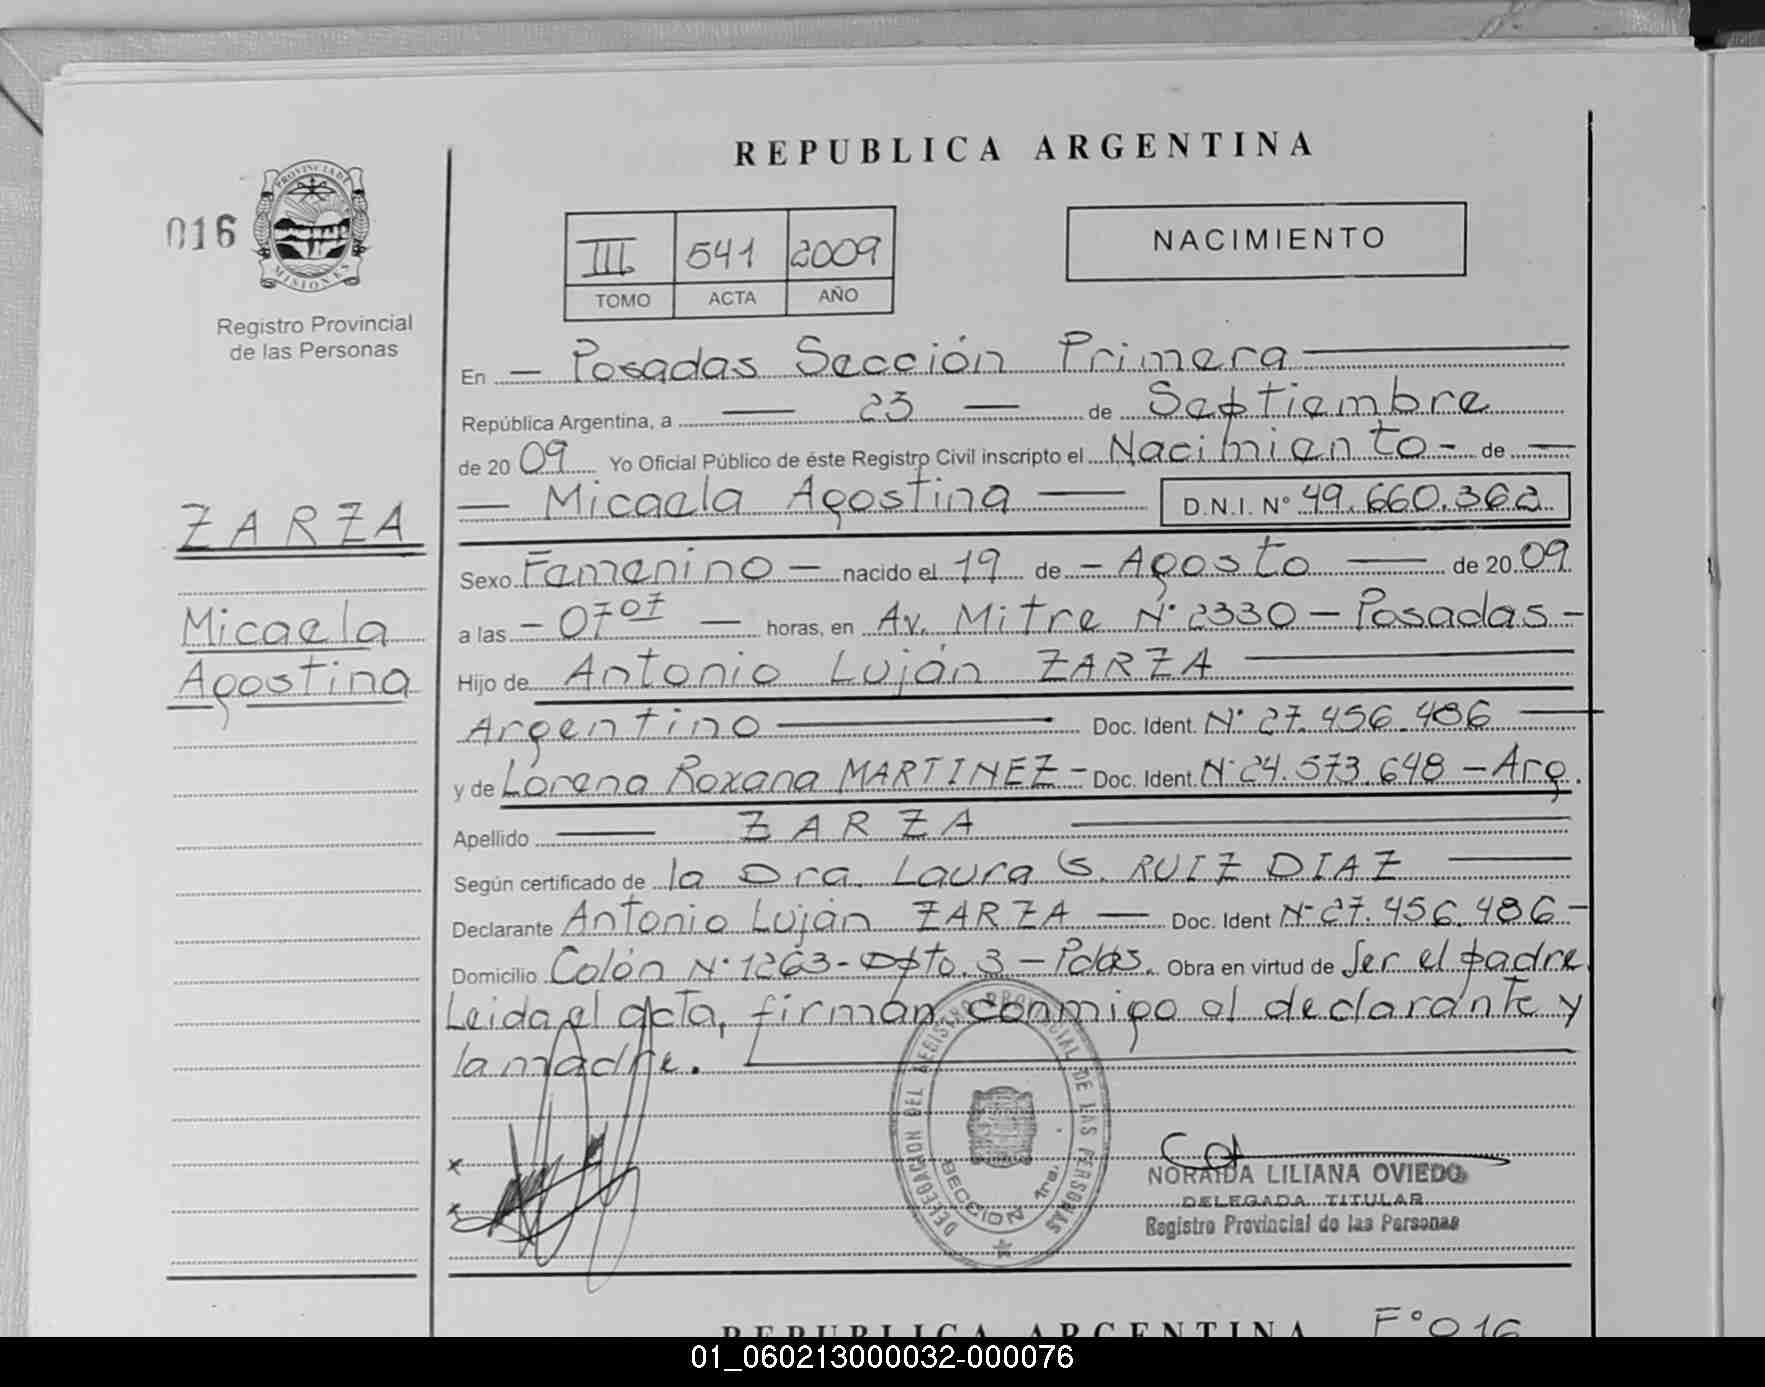 REPUBLICA ARGENTINA
016
PROVINCIA DE
MISIONES
Registro Provincial
de las Personas
III 541 2009
TOMO ACTA AÑO
NACIMIENTO
En — Posadas Sección Primera —
República Argentina, a — 23 — de Septiembre
de 2009 Yo Oficial Público de éste Registro Civil inscripto el Nacimiento - de —
— Micaela Agostina — D.N.I. Nº 49.660.362
ZARZA
Micaela
Agostina
Sexo Femenino — nacido el 19 de - Agosto — de 2009
a las - 0707 — horas, en Av. Mitre Nº 2330 - Posadas -
Hijo de Antonio Luján ZARZA —
Argentino — Doc. Ident. Nº 27.456.486 —
y de Lorena Roxana MARTINEZ - Doc. Ident. Nº 24.573.648 - Arg.
Apellido — ZARZA —
Según certificado de la Dra. Laura S. RUIZ DIAZ —
Declarante Antonio Luján ZARZA — Doc. Ident Nº 27.456.486 -
Domicilio Colón Nº 1263 - Dpto. 3 - Pdas. Obra en virtud de Ser el padre
Leida el acta, firman conmigo el declarante y
la madre.
DELEGACION DEL REGISTRO PROVINCIAL DE LAS PERSONAS
SECCION 1ra.
NORAIDA LILIANA OVIEDO
DELEGADA TITULAR
Registro Provincial de las Personas
REPUBLICA ARGENTINA Fº 016
01_060213000032-000076